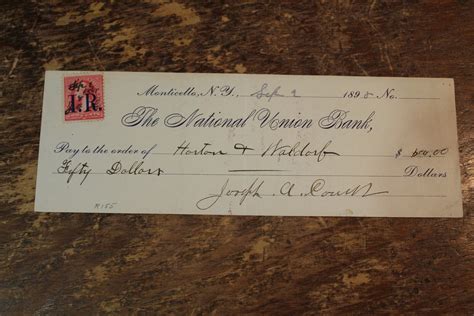 I.R.
Monticello, N.Y., Sep 2 1898 No.
The National Union Bank,
Pay to the order of Horton & Waldorf $ 50.00
Fifty Dollars Dollars
Joseph A.
R155